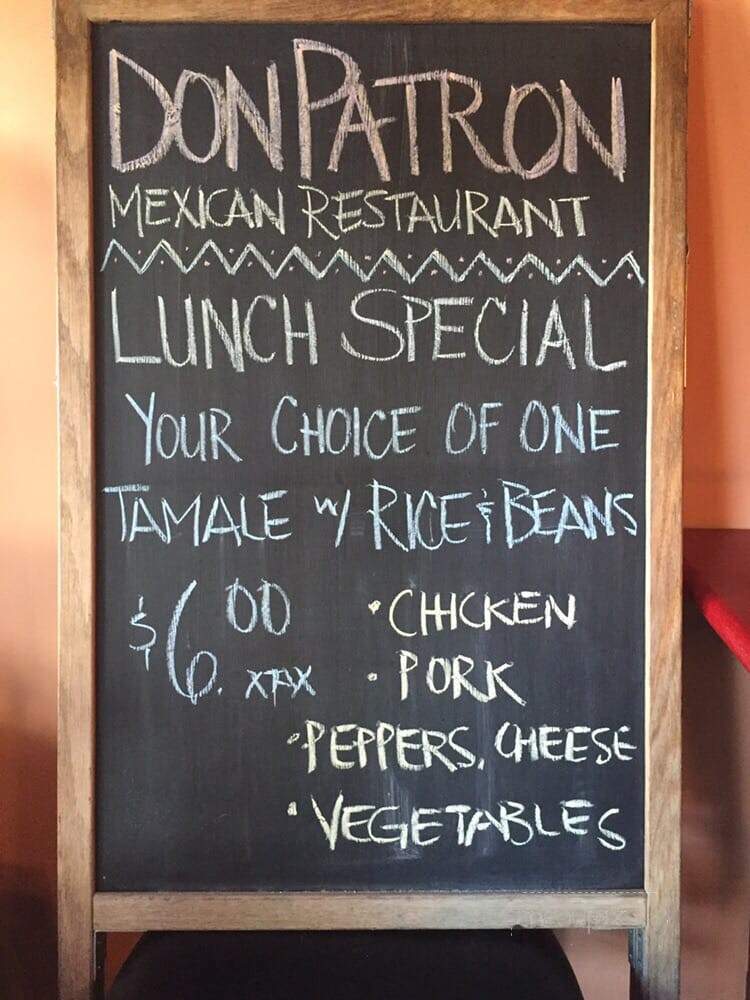 DON PATRON
MEXICAN RESTAURANT
LUNCH SPECIAL
YOUR CHOICE OF ONE
TAMALE W/ RICE & BEANS
$6.00 XTAX
• CHICKEN
• PORK
• PEPPERS, CHEESE
• VEGETABLES